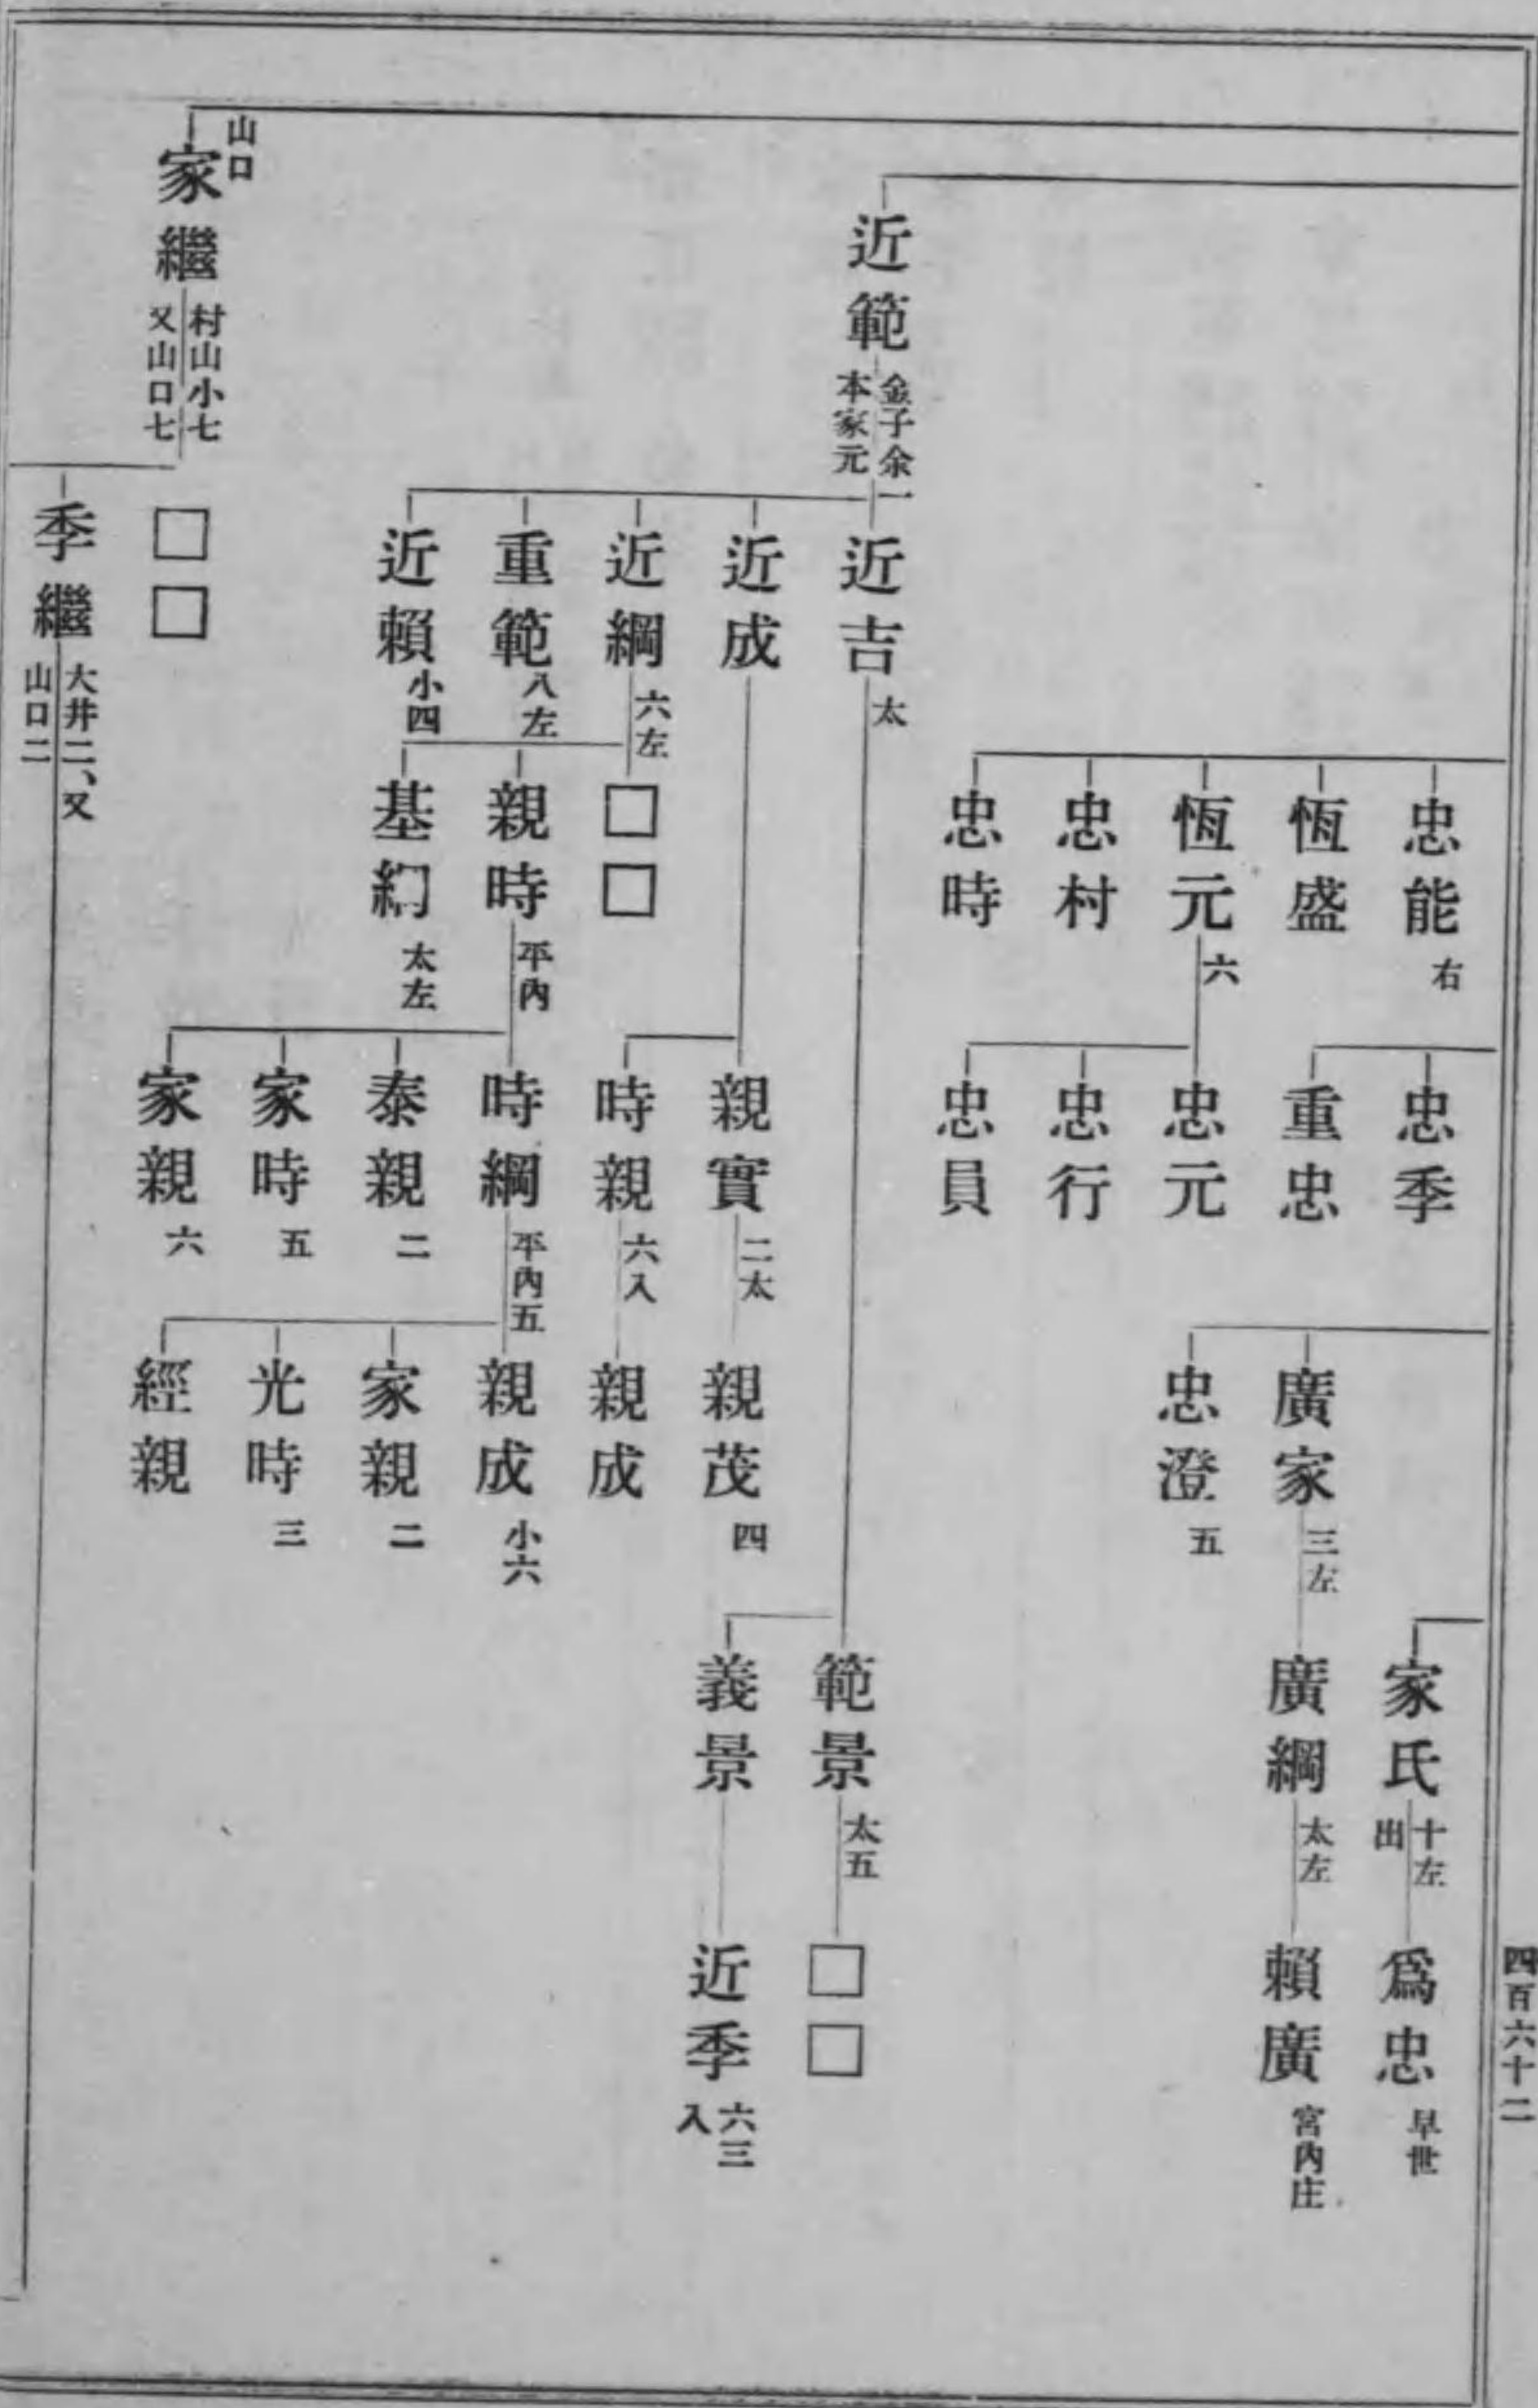 四百六十二
家氏 十左 出
爲忠 早世
廣家 三左
廣綱 太左
賴廣 宮內庄
忠澄 五
忠季
重忠
忠能 右
恆盛
恆元 六
忠元
忠行
忠員
忠村
忠時
近範 金子余一 本家元
近吉 太
範景 太五
□□
義景
近季 六三 入
近成
親實 二太
親茂 四
時親 六入
親成
近綱 六左
□□
親時 平內
時綱 平內五
親成 小六
家親 二
光時 三
經親
泰親 二
家時 五
家親 六
基綱 太左
重範 八左
近賴 小四
山口
家繼 村山小七 又山口七
□□
季繼 大井二、又 山口二